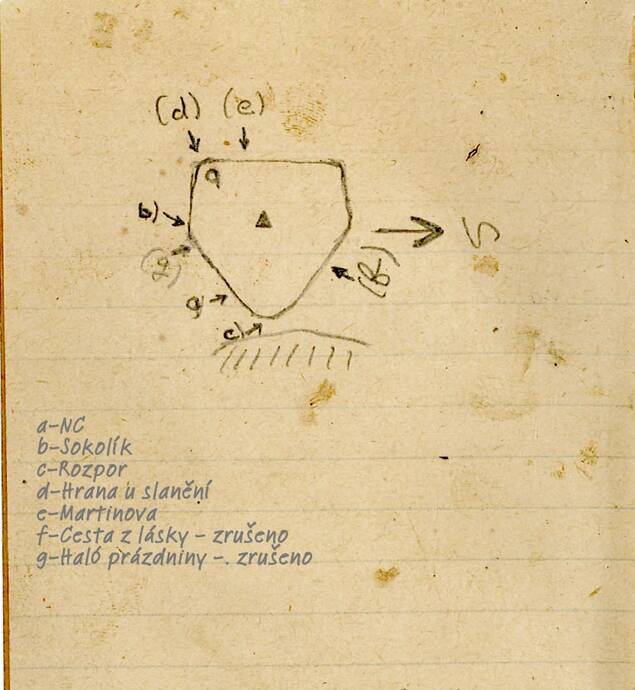 (d) (e)
b)
S
a)
c)
a-NC
b-Sokolík
c-Rozpor
d-Hrana u slanění
e-Martinova
f-Cesta z lásky - zrušeno
g-Haló prázdniny -. zrušeno